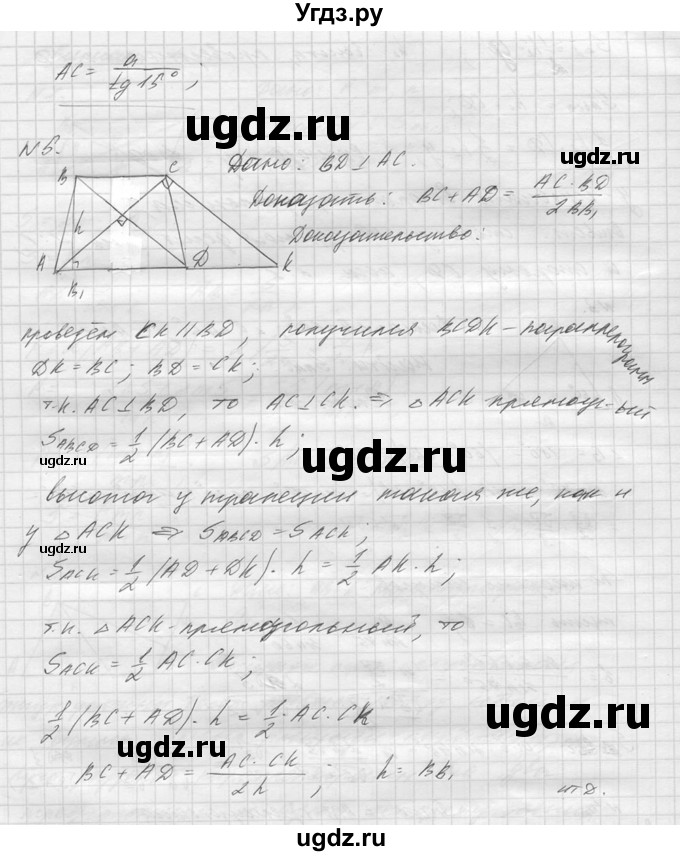 Угdз.ру
AC = a / tg 15° ;
ugdz.ru
N 5.
Дано: BD ⊥ AC.
Доказать: BC + AD = AC · BD / 2BB₁
Доказательство:
B C
h
A D K
B₁
проведём CK || BD, получился BCDK - параллелограмм
DK = BC ; BD = CK ;
т.к. AC ⊥ BD, то AC ⊥ CK. ⇒ △ ACK прямоуг-ый
S ABCD = 1/2 (BC + AD) · h ;
ugdz.ru
высота у трапеции такая же, как и
у △ ACK ⇒ S ABCD = S ACK ;
S ACK = 1/2 (AD + DK) · h = 1/2 AK · h ;
ugdz.ru
т.к. △ ACK - прямоугольный, то
S ACK = 1/2 AC · CK ;
1/2 (BC + AD) · h = 1/2 · AC · CK
ugdz.ru
ugdz.ru
BC + AD = AC · CK / 2h ; h = BB₁
чтд.
ugdz.ru